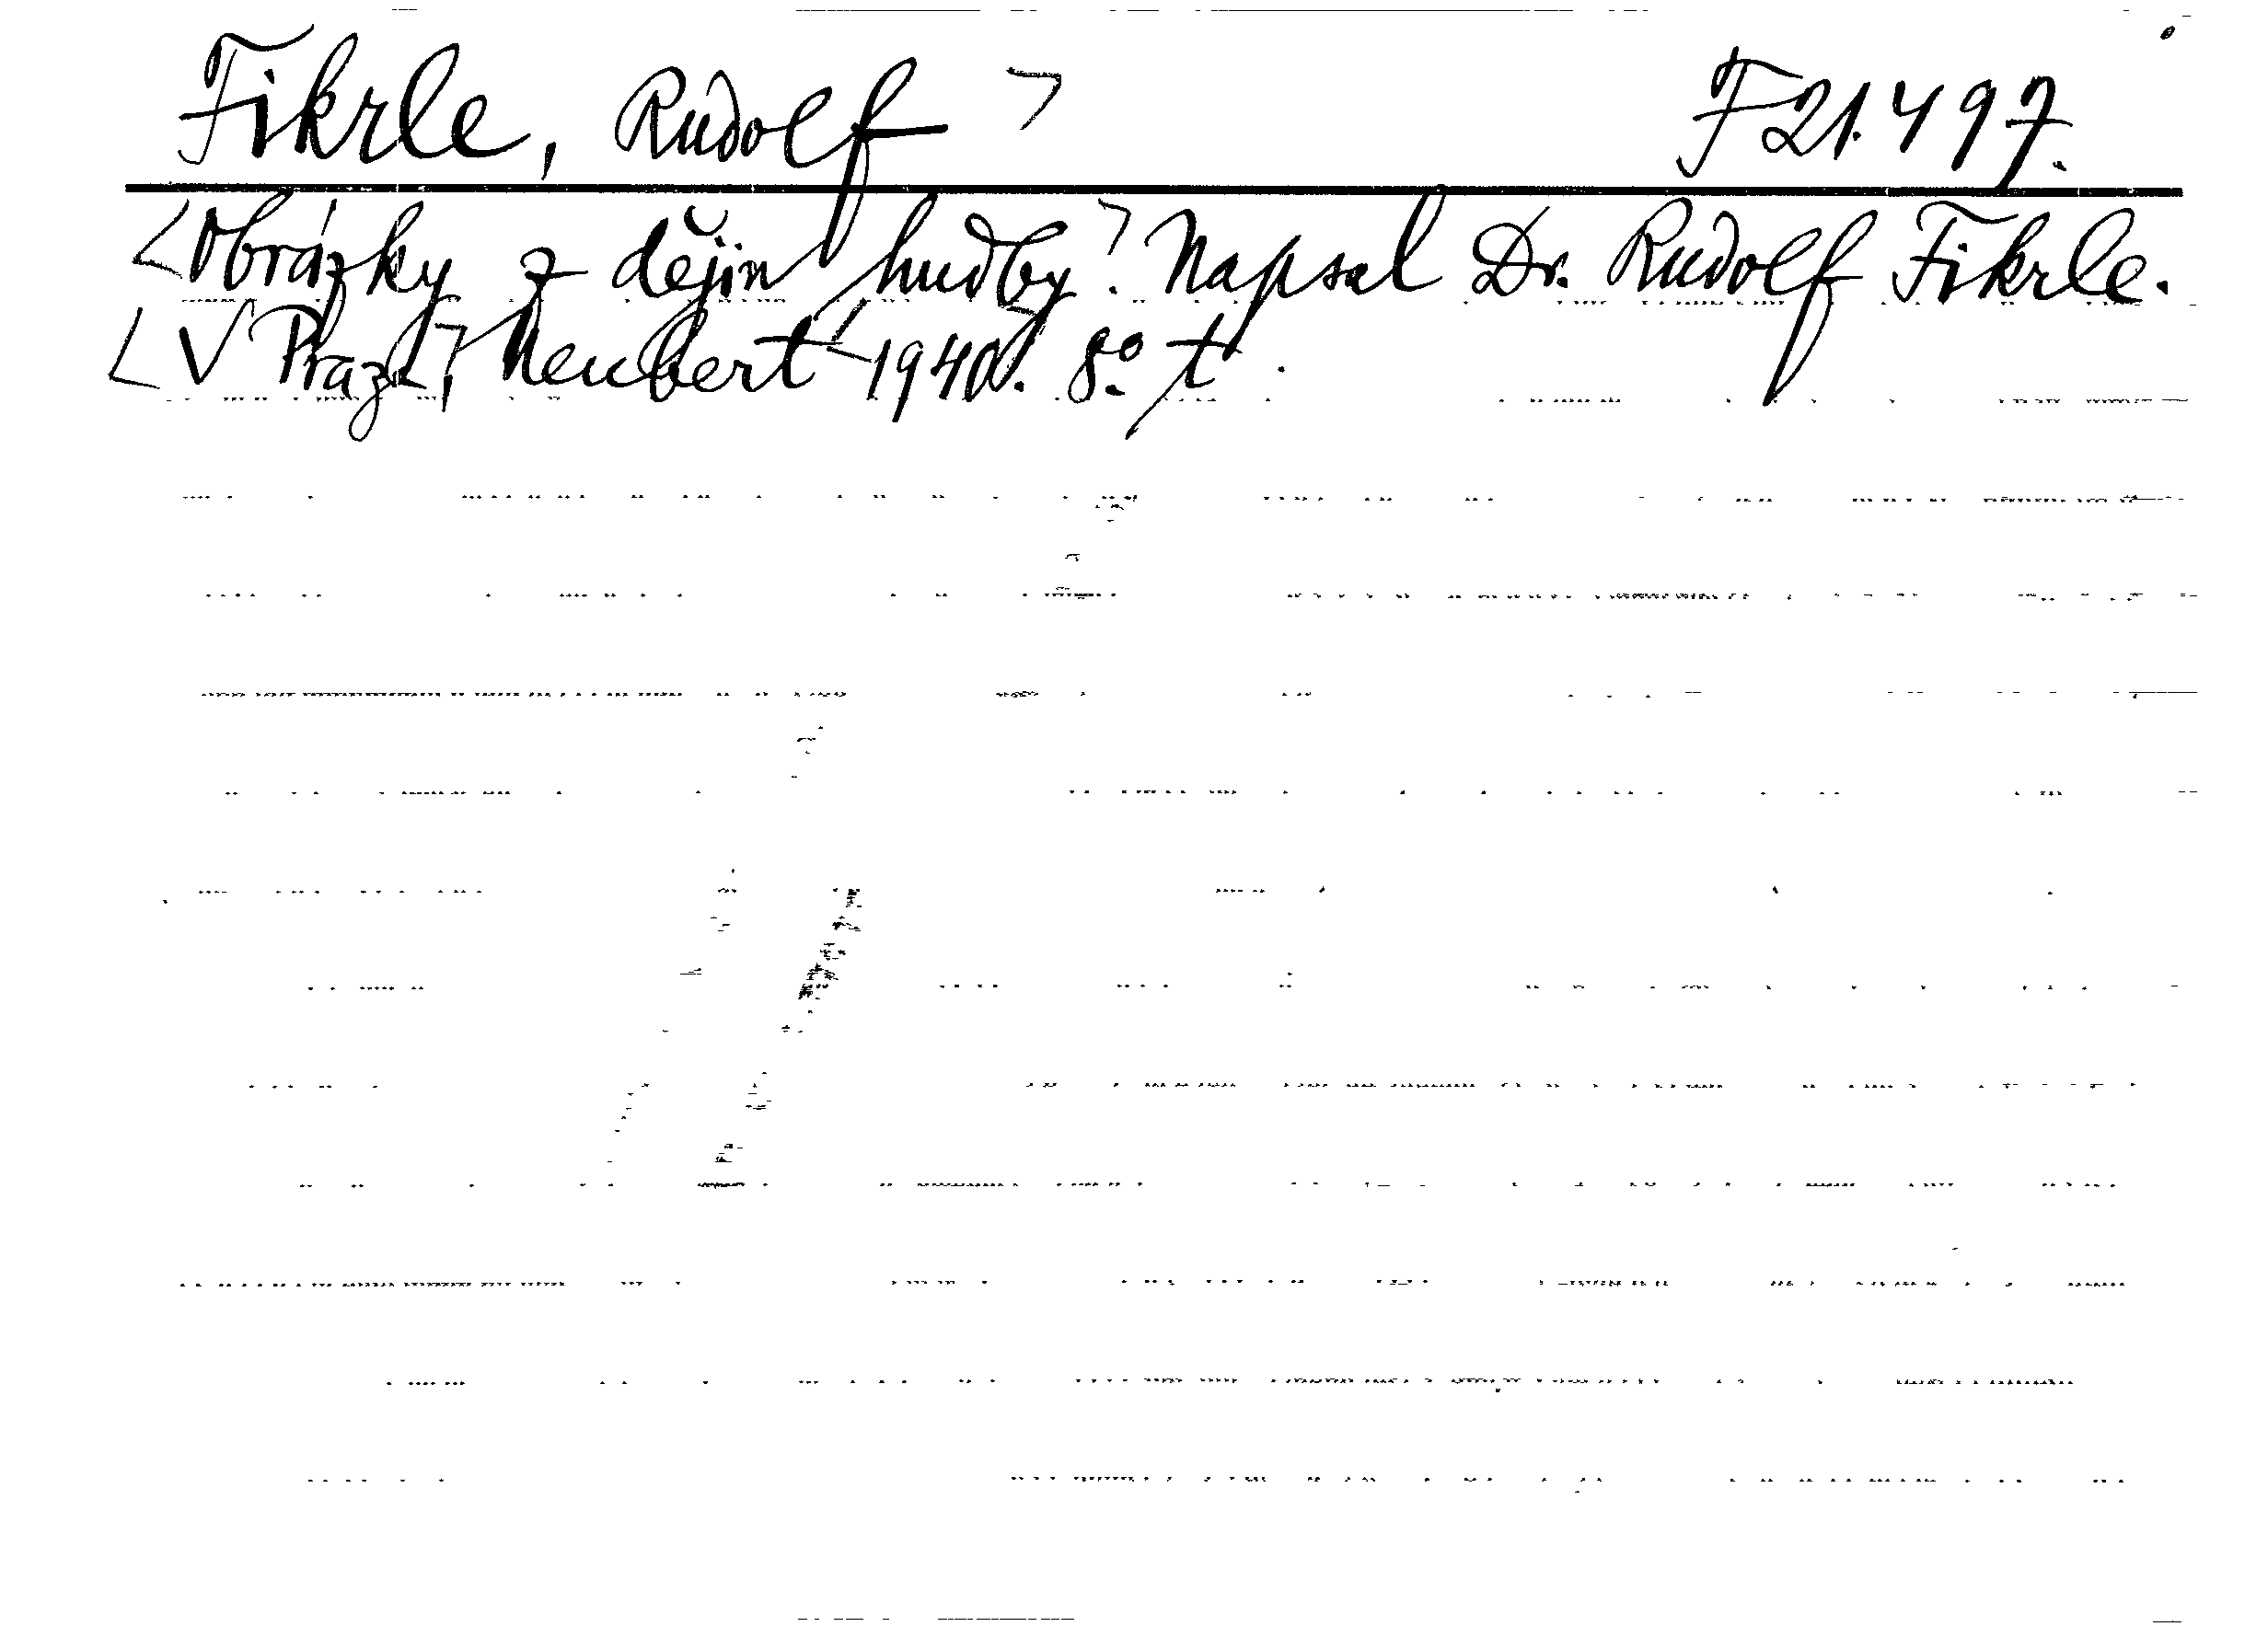 Fikrle, Rudolf > F 21.497.
<Obrázky z dějin hudby.> Napsal Dr. Rudolf Fikrle.
<V Praze>, Neubert <1940>. 8°. t.